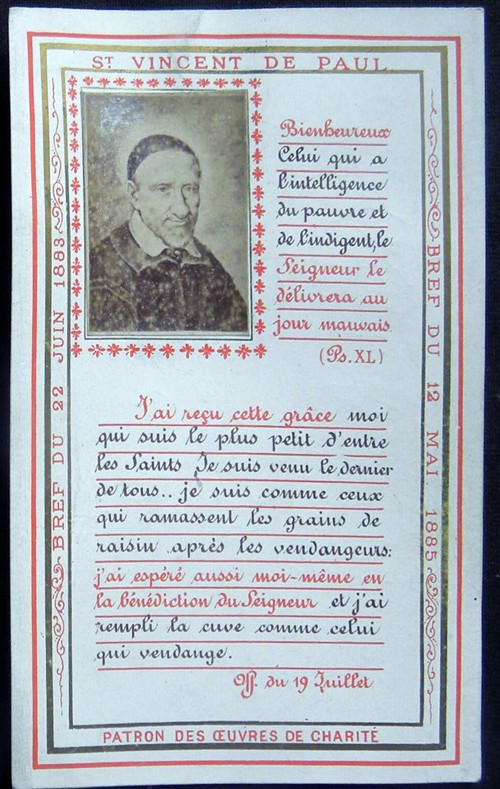 ST VINCENT DE PAUL
Bienheureux
Celui qui a
l'intelligence
du pauvre et
de l'indigent, le
Seigneur le
délivrera au
jour mauvais.
(Ps. XL)
J'ai reçu cette grâce moi
qui suis le plus petit d'entre
les Saints Je suis venu le dernier
de tous.. je suis comme ceux
qui ramassent les grains de
raisin après les vendangeurs:
j'ai espéré aussi moi-même en
la bénédiction du Seigneur et j'ai
rempli la cuve comme celui
qui vendange.
du 19 Juillet
BREF DU 22 JUIN 1883
BREF DU 12 MAI 1885
PATRON DES ŒUVRES DE CHARITÉ